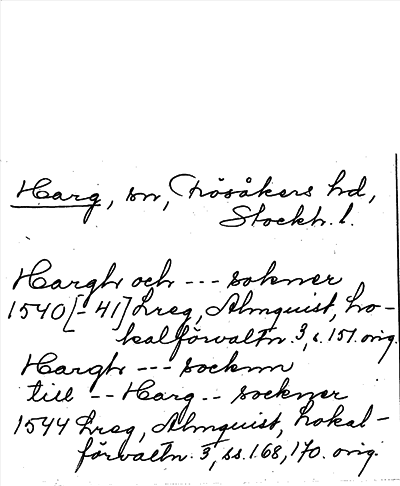 Harg, sn, Frösåkers hd,
Stockh. l.
Hargh och --- soknner
1540 [- 41] Lreg, Almquist, Lo-
kalförvaltn. 3, s. 151. orig.
Hargh --- socknn
till -- Harg -- socknner
1544 Lreg, Almquist, Lokal-
förvaltn. 3, ss. 168, 170. orig.